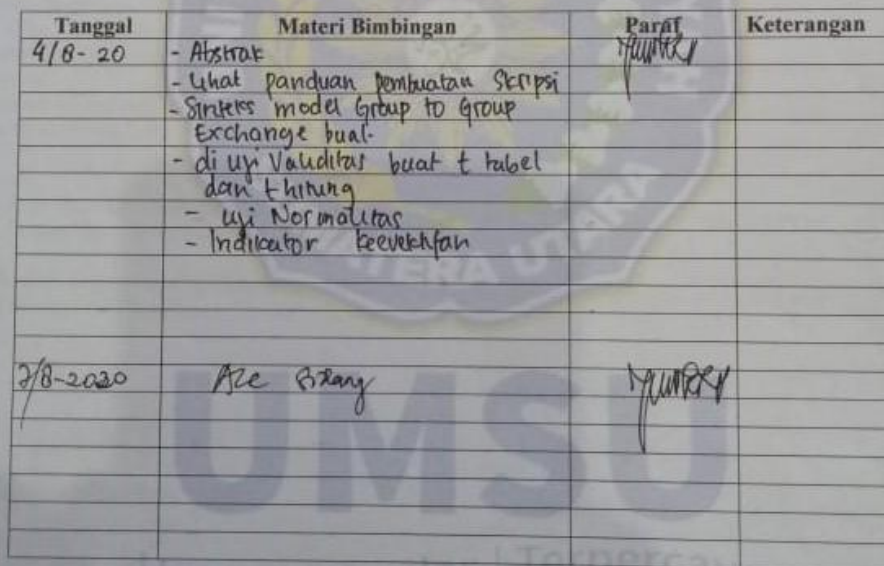 Tanggal Materi Bimbingan Paraf Keterangan
4/8-20 - Abstrak
- Lihat panduan pembuatan Skripsi
- Sinteks model Group to Group
Exchange buat.
- di uji Validitas buat t tabel
dan t hitung
- uji Normalitas
- Indikator keevektifan
7/8-2020 Acc Sidang
TERA UTARA
UMSU
Terperca